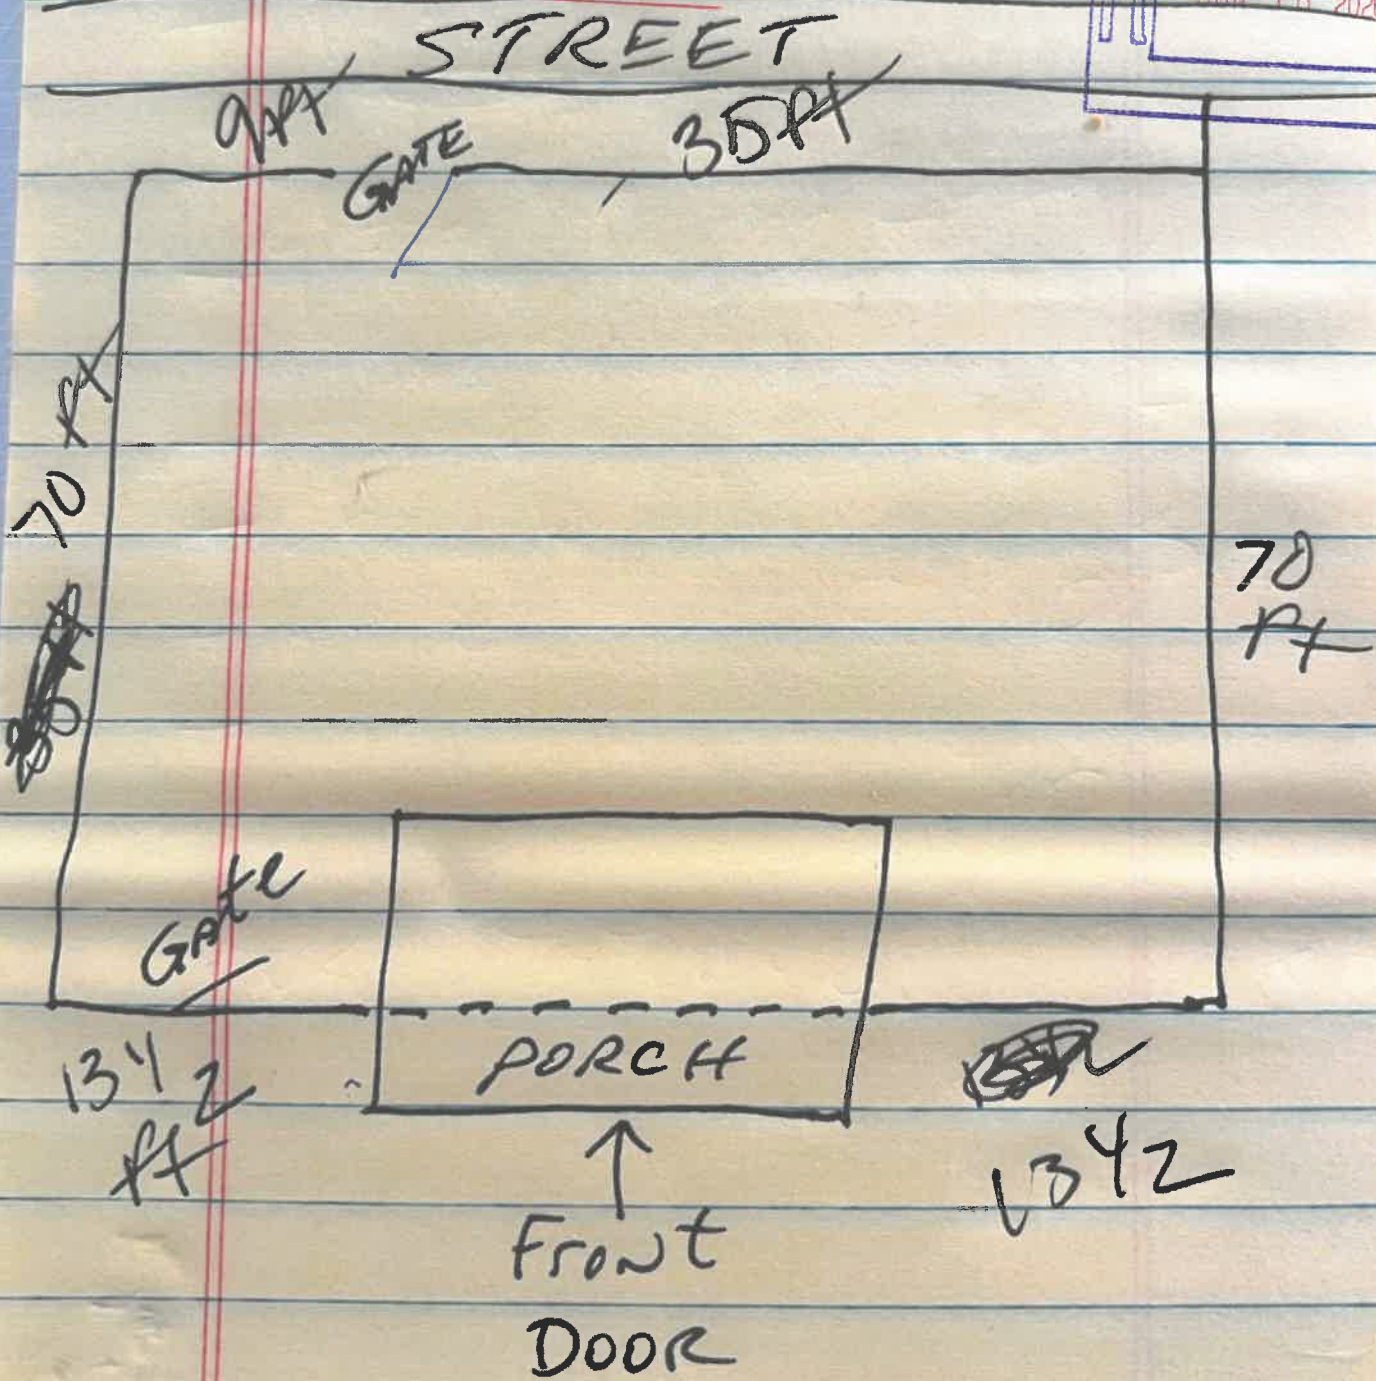 STREET
9ft
GATE
35ft
70 ft
70
ft
Gate
PORCH
13 1/2
ft
13 1/2
Front
DOOR